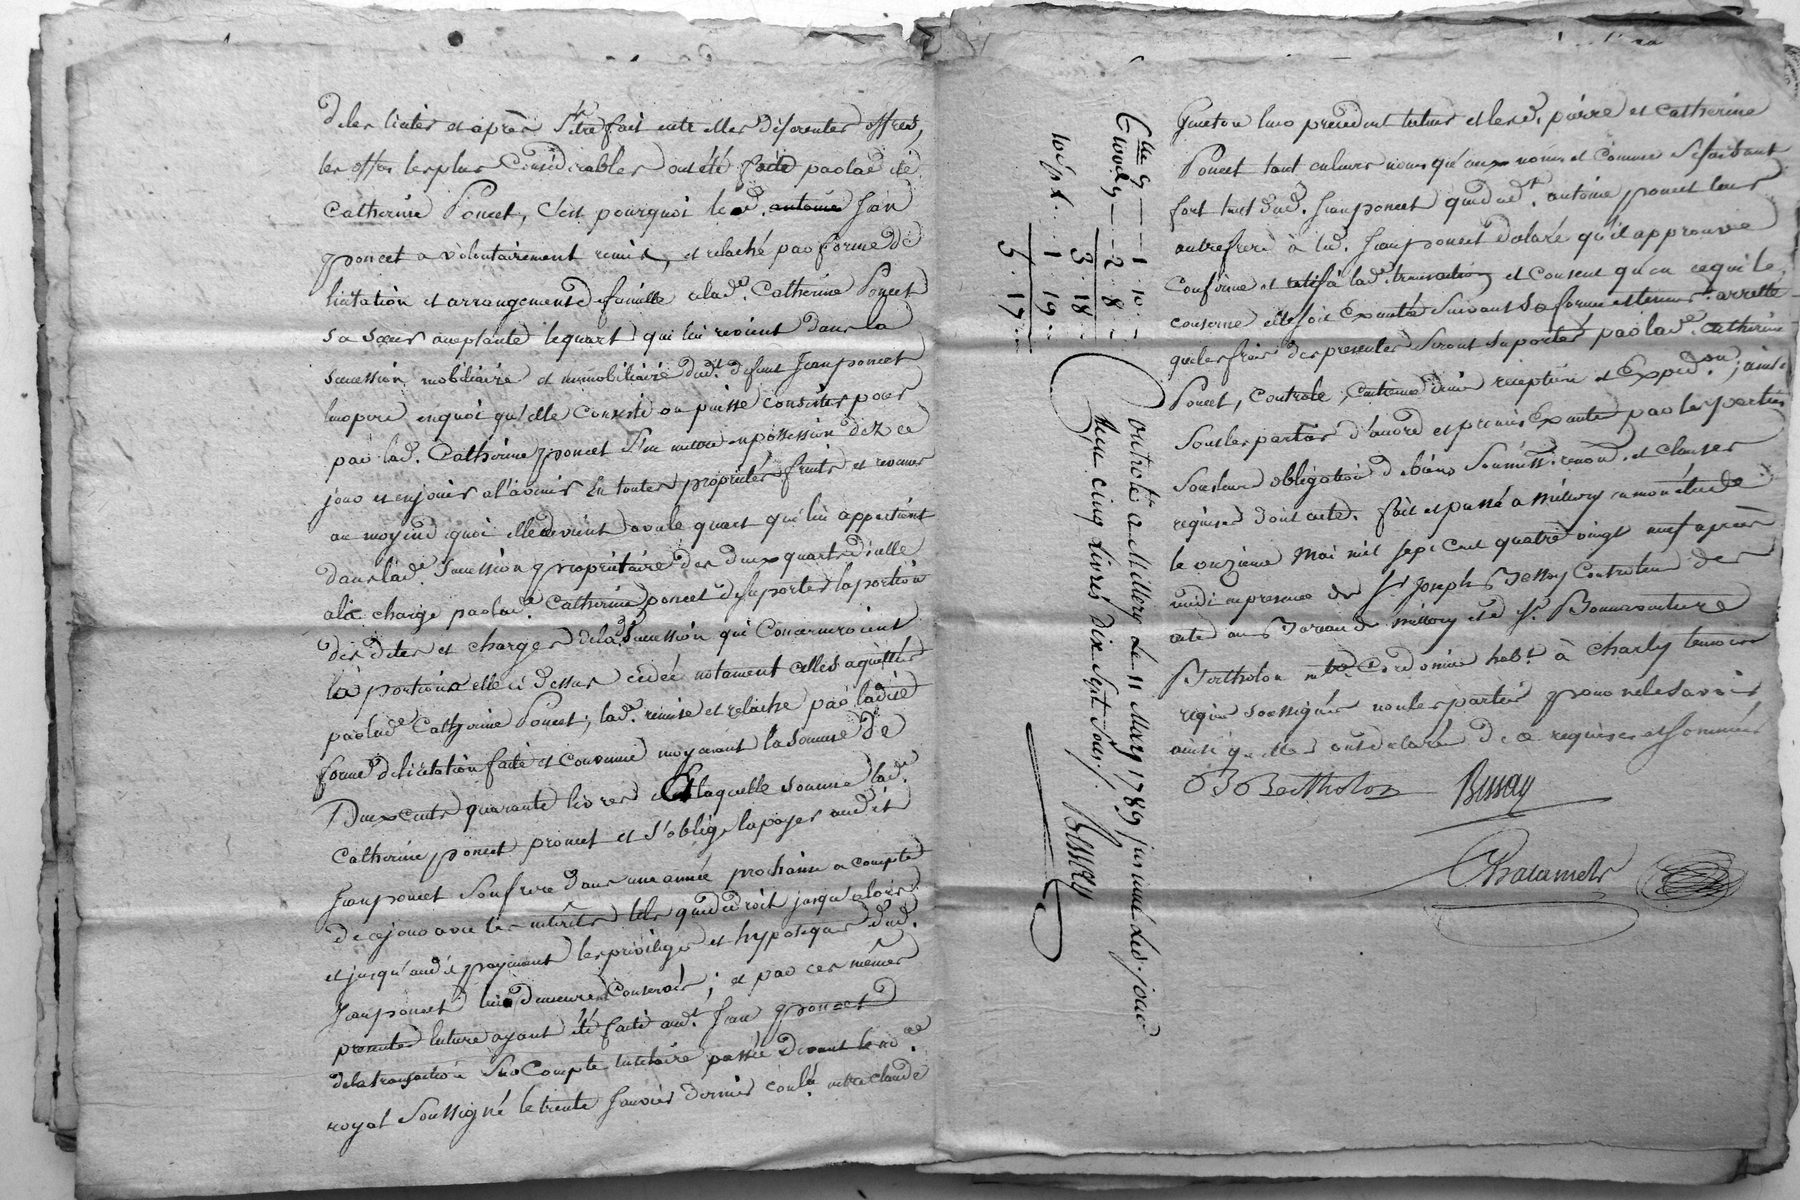 de les liciter et après s'être fait entr'elles diferentes offres,
les offres les plus considerables ont été faite par lad ite
Catherine Poncet, c'est pourquoi led. antoine Jean
poncet a volontairement remis, et relaché par forme de
licitation et arrangement de famille a lad.e Catherine Poncet
sa sœur acceptante le quart qui lui revient dans la
succession mobiliaire et immobiliaire dud.t defunt Jean poncet
leur pere en quoi qu'elle consiste ou puisse consister pour
par lad. Catherine poncet s'en mettre en possession dez ce
jour et en jouir a l'avenir en toutes propriétés fruits et revenus
au moyend quoi elle devient avec le quart qui lui appartient
dans lad.e succession propriétaire des deux quarts d'icelle
a la charge par lad.e Catherine poncet de suporter la portion
des dettes et charges de lad. succession qui concerneroient
la portion a elle ci dessus cedée notament celles a
par lad.e Catherine Poncet, lad.e remise et relache par ladite
forme de licitation faite et convenue moyenant la somme de
Deux cents quarante livres laquelle somme lad.e
Catherine poncet promet et s'oblige la payer audit
Jean poncet son frere dans une année prochaine a compter
de ce jour avec les interets tels que de droit jusqu'alors
et jusqu'audit payement les privileges et hypoteques dud.
Jean poncet lui demeurent conservés ; et par ces mêmes
presentes lecture ayant été faite aud.t Jean poncet
de la transaction sur compte tutelaire passée devant le no.re
royal soussigné le trente Janvier dernier con.lé entre claude
leur precedent tuteur et lesd. pierre et Catherine
Poncet tant en leurs noms qu'aux noms et comme se faisant
fort tant dud. Jean poncet que dud.t antoine poncet leur
autre frere à led. Jean poncet declaré qu'il approuve
confirme et ratifi à lad.e transaction et consent qu'en ce qui le
concerne elle soit executée suivant sa forme et teneur. arretté
que les frais des presentes seront suportés par lad.e Catherine
Poncet, controle, centieme denier reception et Exped.on ; ainsi
sont les parties d'accord et promis executer par les parties
sous leur obligation de biens soumiss. renon. et clauses
requises dont acte. fait et passé a Millery en mon étude
le onzieme Mai mil sept cent quatre vingt neuf après
midi en presence de S.r Joseph Bessay Controleur des
actes au Bureau de Millery et de S.r Bonnaventure
Bertholon m.tre Cordonnier hab.t à Charly temoins
requis soussignés non les parties pour ne le savoir
ainsi qu'elles ont declaré de ce requises et sommées
B Bertholon Bessay
Chatamels
C.lle 9 — 1 . 10 . —
— 2 . 8 . —
3 . 18 . —
10 s. p. l. . . 1 19 . .
5 . 17 . .
Controlé a Millery Le 11 May 1789 Led. jour
Reçu cinq Livres Dix Sept Sous. Bessay